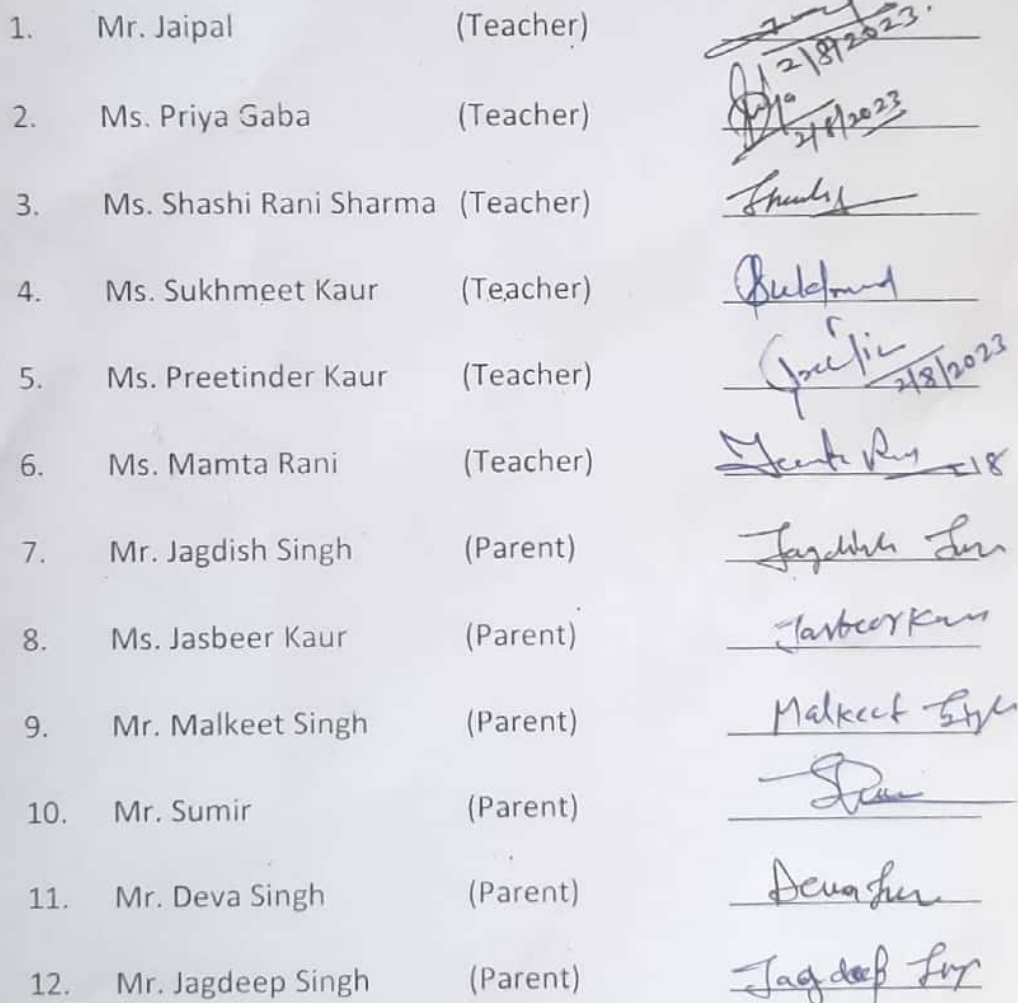 1. Mr. Jaipal (Teacher) 2/8/2023.
2. Ms. Priya Gaba (Teacher) 2/8/2023
3. Ms. Shashi Rani Sharma (Teacher)
4. Ms. Sukhmeet Kaur (Teacher)
5. Ms. Preetinder Kaur (Teacher) 2/8/2023
6. Ms. Mamta Rani (Teacher)
7. Mr. Jagdish Singh (Parent) Jagdish
8. Ms. Jasbeer Kaur (Parent) Jasbeer Kaur
9. Mr. Malkeet Singh (Parent) Malkeet Singh
10. Mr. Sumir (Parent)
11. Mr. Deva Singh (Parent) Deva
12. Mr. Jagdeep Singh (Parent) Jagdeep